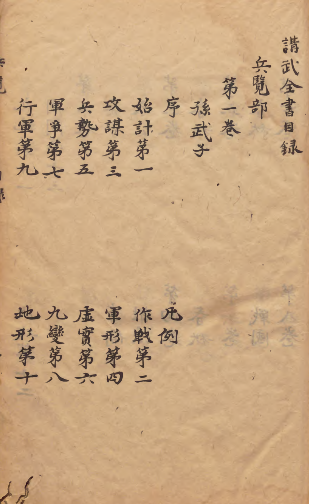 講武全書目錄
兵覽部
第一巻
孫武子
序
凡例
始計第一
作戰第二
攻謀第三
軍形第四
兵勢第五
虛實第六
軍爭第七
九變第八
行軍第九
地形第十